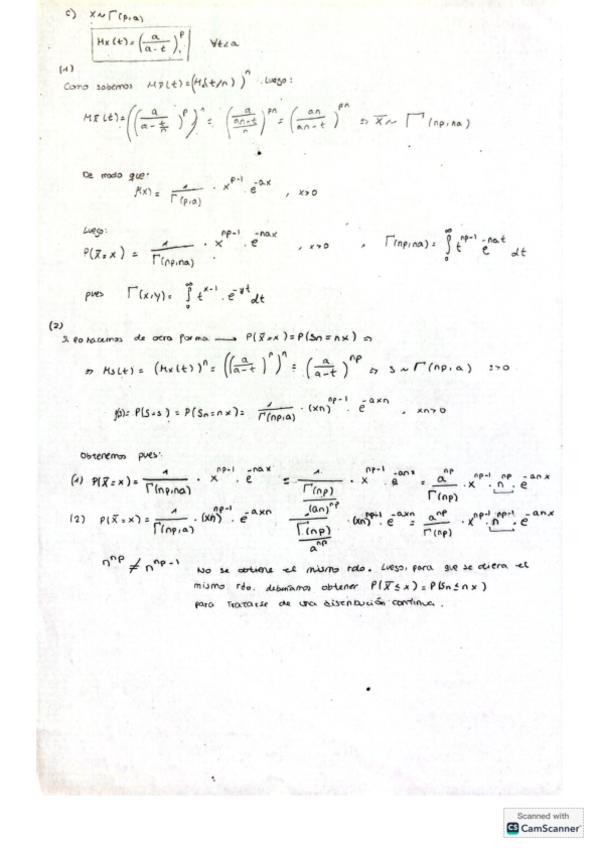 c) X ~ Γ(p,a)
Mx(t) = (a/(a-t))^p ∀t<a
(1)
Como sabemos Mx̄(t) = (Mx(t/n))^n. Luego:
Mx̄(t) = ((a/(a-t/n))^p)^n = (a/((an-t)/n))^pn = (an/(an-t))^pn ⇒ x̄ ~ Γ(np,na)
De modo que:
f(x) = 1/Γ(p,a) · x^(p-1) · e^(-ax), x>0
Luego:
P(x̄=x) = 1/Γ(np,na) · x^(np-1) · e^(-nax), x>0, Γ(np,na) = ∫₀^∞ t^(np-1) e^(-nat) dt
pues Γ(x,y) = ∫₀^∞ t^(x-1) · e^(-yt) dt
(2)
Si lo hacemos de otra forma → P(x̄=x) = P(Sn=nx) ⇒
⇒ Ms(t) = (Mx(t))^n = ((a/(a-t))^p)^n = (a/(a-t))^np ⇒ S ~ Γ(np,a) s>0
f(s) = P(S=s) = P(Sn=nx) = 1/Γ(np,a) · (xn)^(np-1) · e^(-axn), xn>0
Obtenemos pues:
(1) P(x̄=x) = 1/Γ(np,na) · x^(np-1) · e^(-nax) = 1/(Γ(np)/(an)^np) · x^(np-1) · e^(-anx) = a^np/Γ(np) · x^(np-1) · n^np · e^(-anx)
(2) P(x̄=x) = 1/Γ(np,a) · (xn)^(np-1) · e^(-axn) 1/(Γ(np)/a^np) · (xn)^(np-1) · e^(-axn) = a^np/Γ(np) · x^(np-1) · n^(np-1) · e^(-anx)
n^np ≠ n^(np-1) No se obtiene el mismo rdo. Luego, para que se diera el
mismo rdo. deberíamos obtener P(x̄≤x) = P(Sn≤nx)
para tratarse de una distribución continua.
Scanned with
CS CamScanner